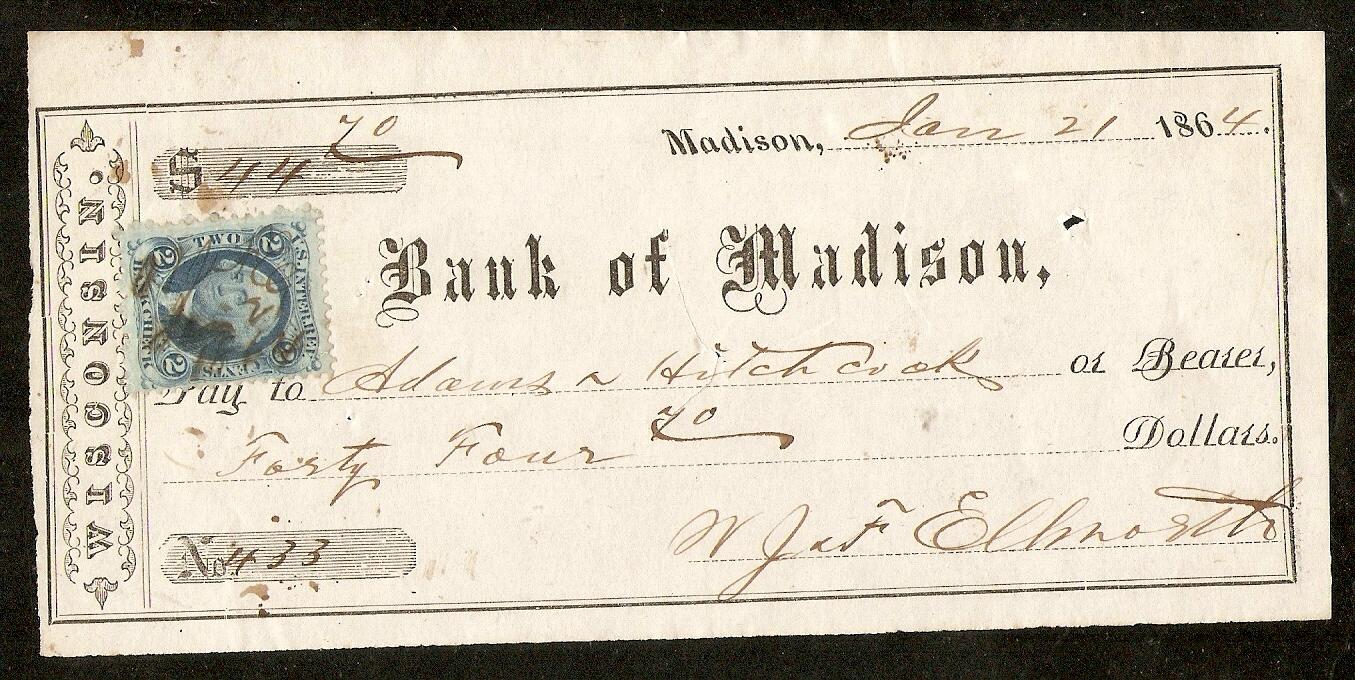 WISCONSIN.
$ 44 70
Madison, Jan 21 1864.
Bank of Madison,
TWO CENTS
U.S. INTER. REV.
BANK CHECK
2 2 2 2
Pay to Adams & Hitchcock or Bearer,
Forty Four 70 Dollars.
No. 433
W J & F Ellsworth